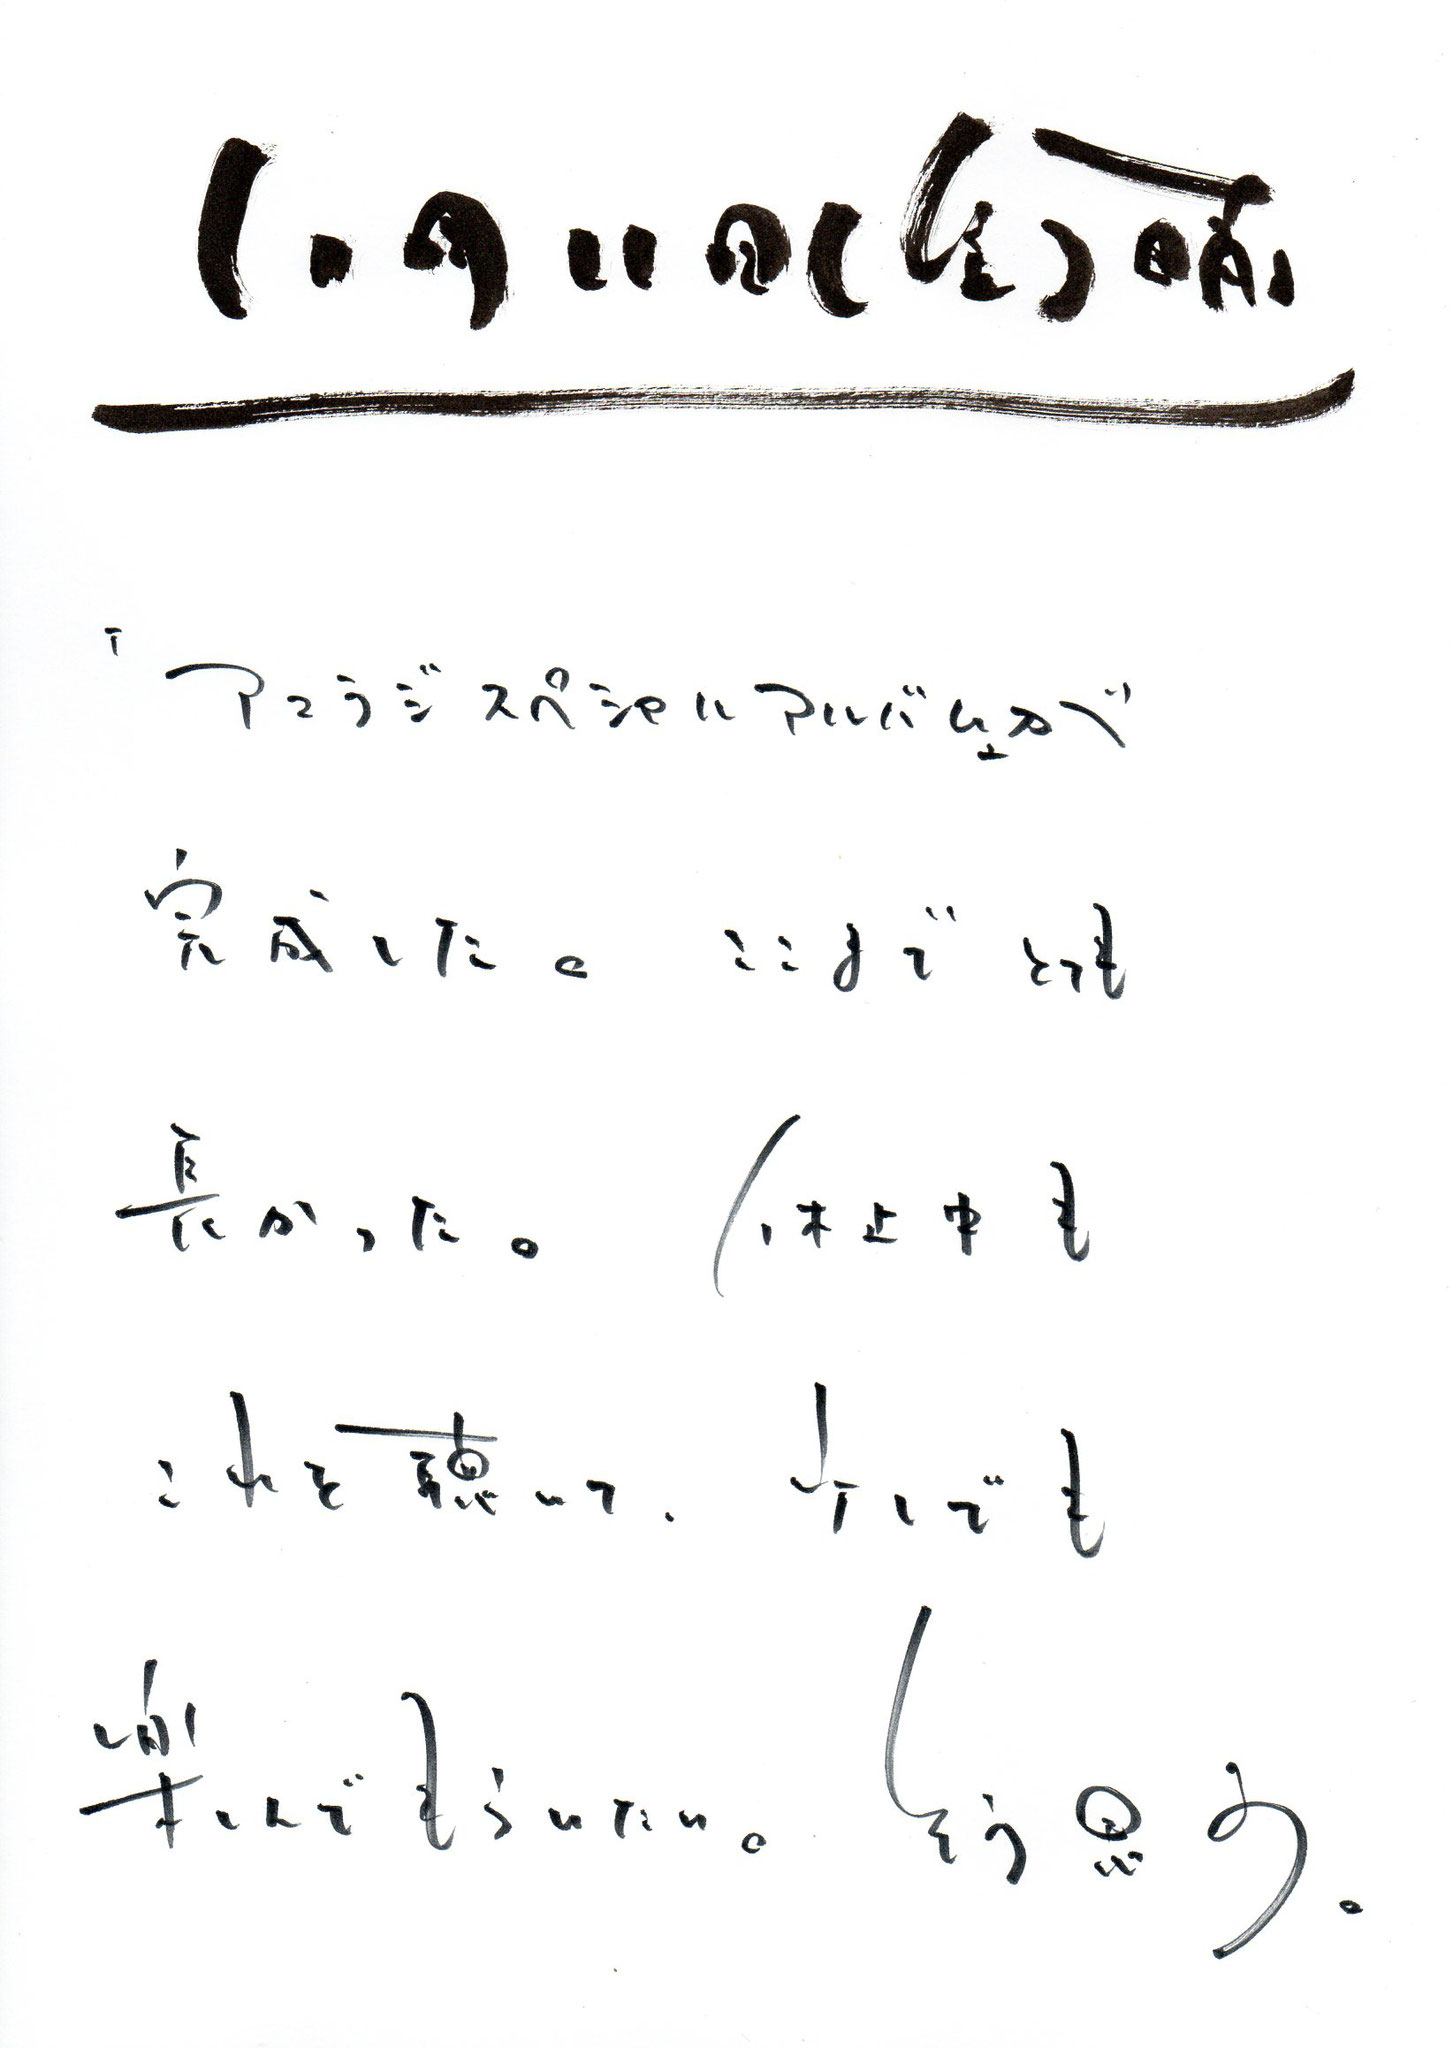 「アコラジスペシャルアルバム」が
完成した。ここまでとても
長かった。休止中も
これを聴いて、少しでも
楽しんでもらいたい。そう思う。